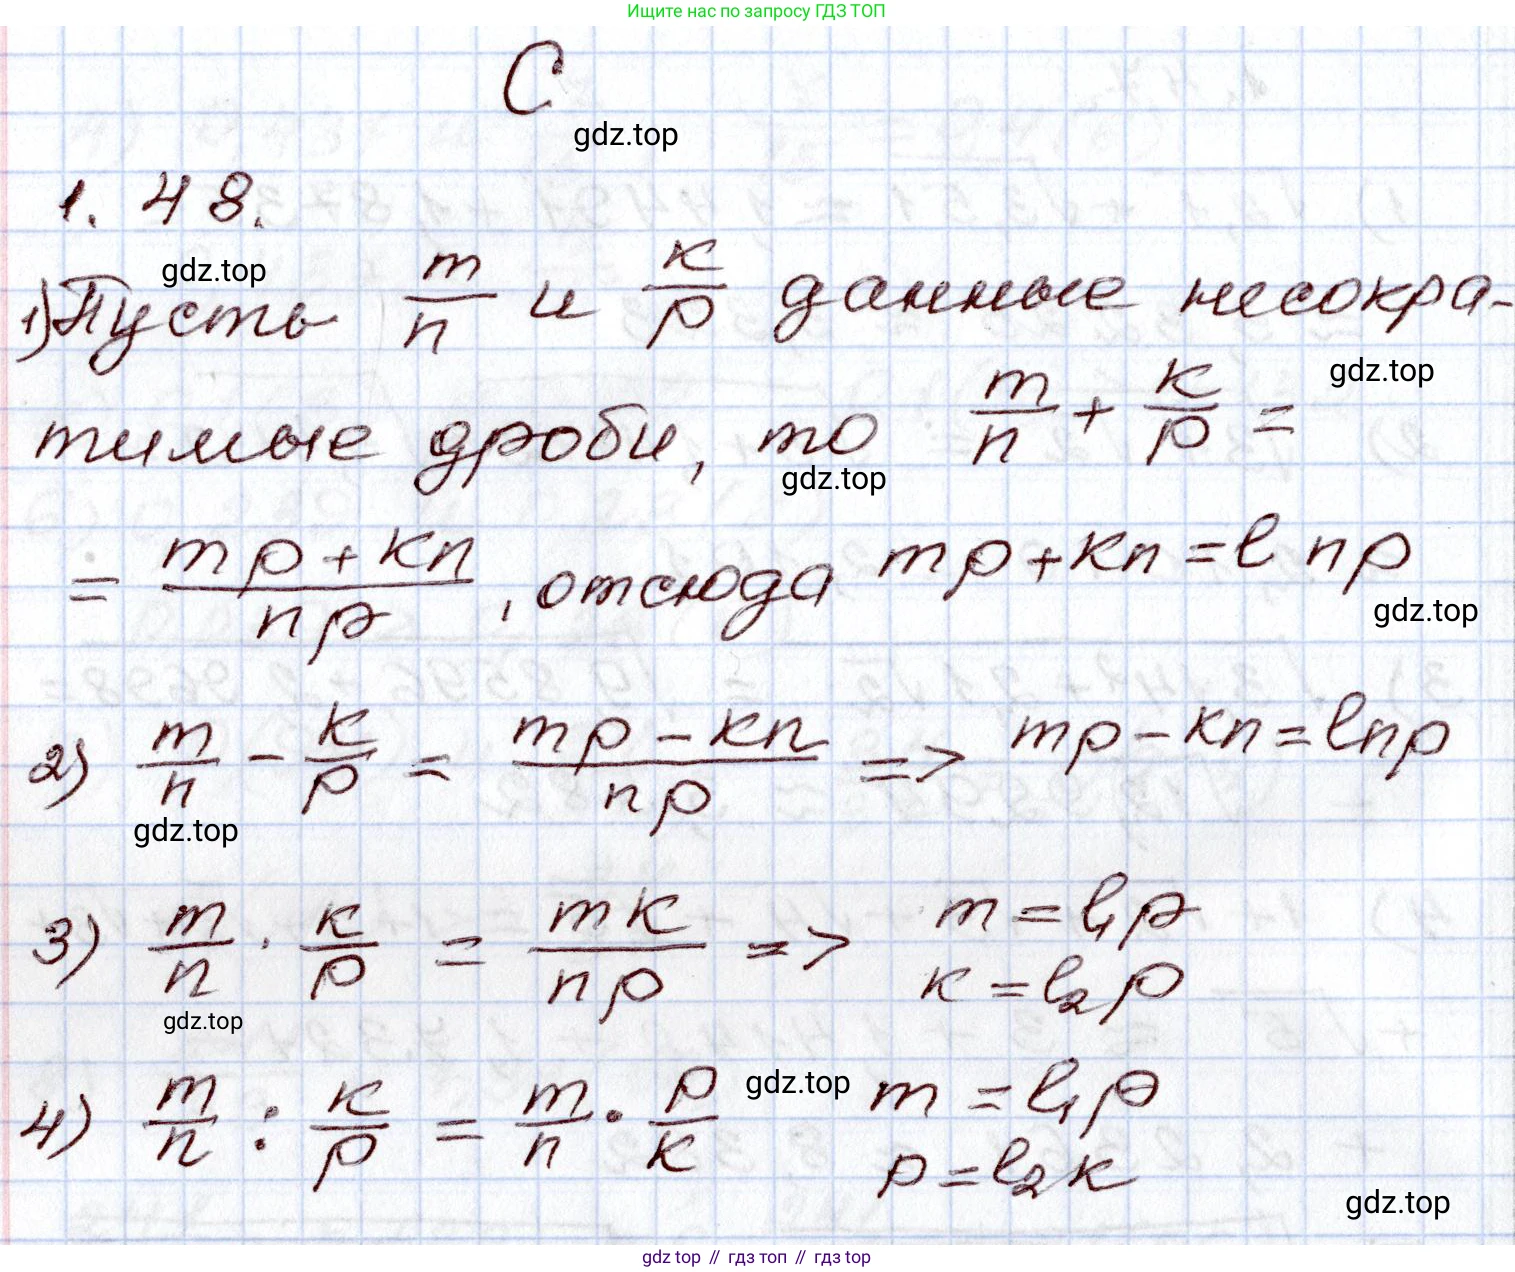 Ищите нас по запросу ГДЗ ТОП
С
gdz.top
1. 48.
gdz.top
1) Пусть m/n и k/p данные несокра-
gdz.top
тимые дроби, то m/n + k/p =
gdz.top
= (mp + kn)/(np), отсюда mp + kn = lnp
gdz.top
2) m/n - k/p = (mp - kn)/(np) => mp - kn = lnp
gdz.top
3) m/n · k/p = mk/(np) => m = l₁p
k = l₂p
gdz.top
4) m/n : k/p = m/n · p/k m = l₁p
gdz.top
p = l₂k
gdz.top
gdz top // гдз топ // гдз top